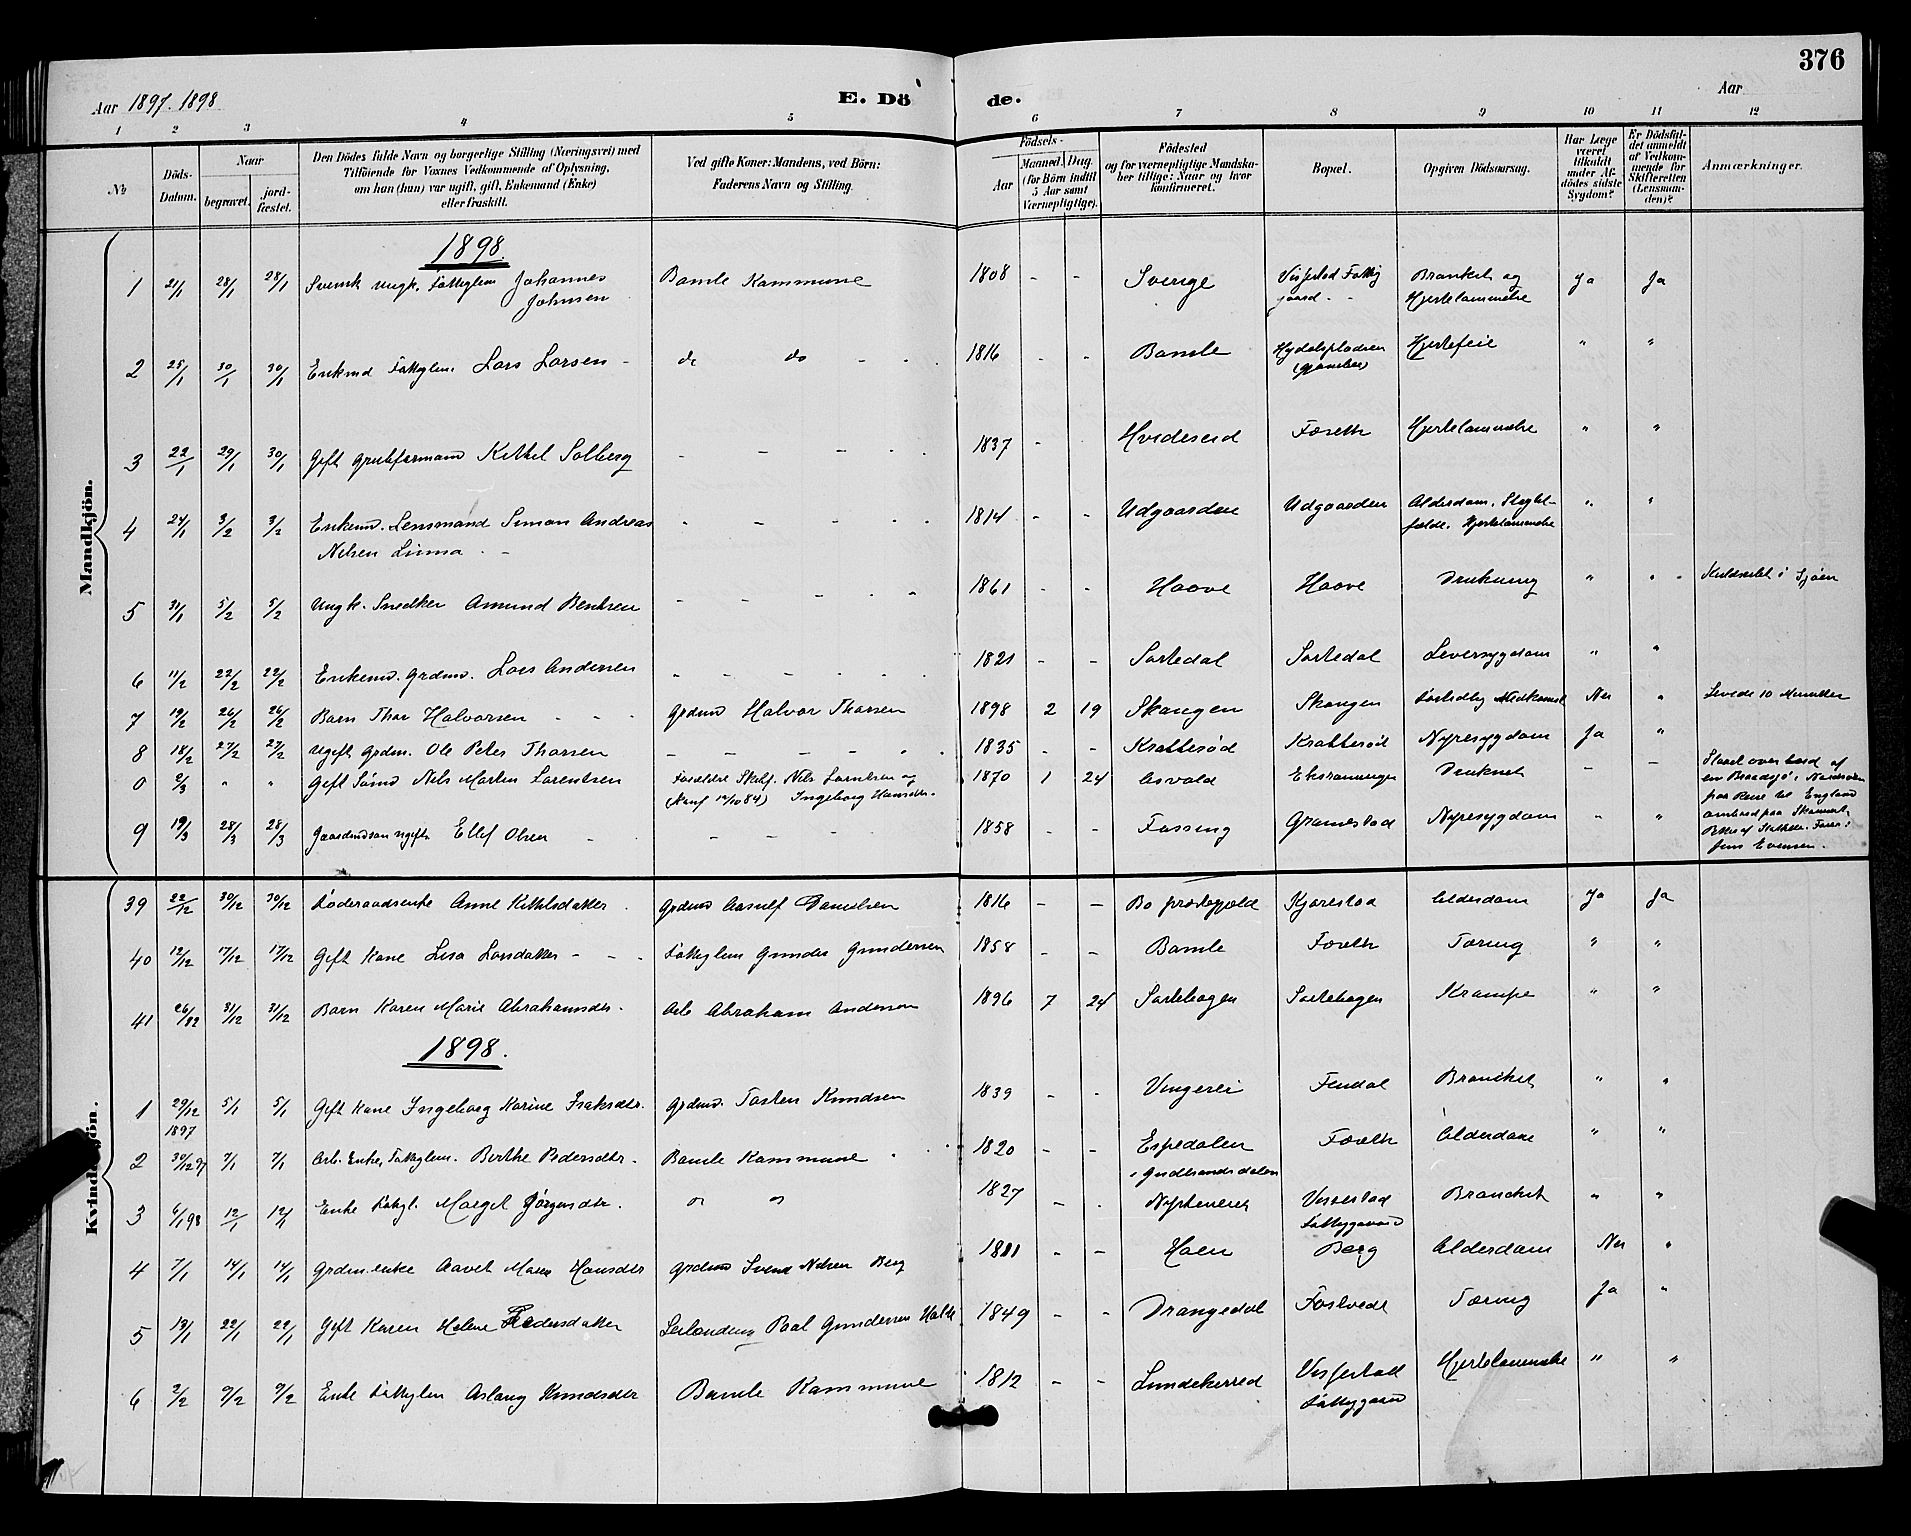 376
Aar 1897. 1898
E. Dö de.
Aar
1 2 3 4 5 6 7 8 9 10 11 12
No
Döds-Datum.
Naar
begravet.
jord-fæstet.
Den Dödes fulde Navn og borgerlige Stilling (Næringsvei) med
Tilföiende for Voxnes Vedkommende af Oplysning,
om han (hun) var ugift, gift, Enkemand (Enke)
eller fraskilt.
Ved gifte Koner: Mandens, ved Börn:
Faderens Navn og Stilling.
Födsels-
Aar
Maaned. Dag.
(for Börn indtil
5 Aar samt
Værnepligtige).
Födested
og for værnepligtige Mandska-
ber tillige: Naar og hvor
konfirmeret.
Bopæl.
Opgiven Dödsaarsag.
Har Læge
været
tilkaldt
under Af-
dödes sidste
Sygdom?
Er Dödsfal-
det anmeldt
af Vedkom-
mende for
Skifteretten
(Lensman-
den)?
Anmærkninger.
Mandkjön.
1898.
1 21/1 28/1 28/1 Svensk ungk. Fattiglem Johannes Johnsen Bamle Kommune 1808 - - Sverige Vissestad Fattiggaard - - Bronkit og Hjertelammelse Ja Ja
2 25/1 30/1 30/1 Enkmd Fattiglem. Lars Larsen - do do - - 1816 - - Bamle Hjertefeil " "
3 22/1 29/1 30/1 Gift Grubeformand Kittel Solberg - - - - 1837 - Hvideseid Foseth Hjertelammelse " "
4 24/1 3/2 3/2 Enkemd. Lensmand Simon Andreas
Nilsen Linna - - - - 1814 - - Udgaarden Udgaarden Alderdom. Hjertelammelse " "
5 31/1 5/2 5/2 Ungk. Snedker Amund Bentsen - - - - 1861 - - Haave Haave Drukning " " Kuldseilet i Sjöen
6 11/2 22/2 22/2 Enkemd. Grdmd. Lars Andersen - - - - 1821 - - Sortedal Sortedal Leversygdom " "
7 19/2 26/2 26/2 Barn Thor Halvorsen - - Grdmd Halvor Thorsen 1898 2 19 Skaugen Skaugen Nei " Levede 10 Minutter
8 18/2 27/2 27/2 Ugift Grdm. Ole Peter Thorsen - - - - 1835 - - Krabberød Krabberød Nyresygdom Ja "
0 2/3 " " Gift Sømd Nils Martin Larentsen Forældre Nils Larentsen og
(Konf 12/10 84) Ingeborg Hansdtr. 1870 1 24 Asvald Druknet - - Slaaet overbord af
en Braadsjø i Nordsøen
paa Reise til England
ombord paa
Jens Evensen.
9 19/3 28/3 28/3 Gaardmdssøn ugift Ellef Olsen - - - - 1858 - - Fossing Grømstad Nyresygdom " "
Kvindekjön.
39 22/12 30/12 30/12 Føderaadsenke Anne Kittilsdatter Grdmd Aasulf Danielsen 1816 - - Bø præstegjæld Kjørestad Alderdom Ja Ja
40 12/12 17/12 17/12 Gift Kone Lisa Larsdatter - - - Fattiglem Gunder Gundersen 1858 - - Bamle Foseth Tæring " "
41 26/12 31/12 31/12 Barn Karen Marie Abrahamsdtr. Arb Abraham Anderson 1896 7 24 Sortehogen Sortehogen Krampe " "
1898.
1 29/12 1897 5/1 5/1 Gift Kone Ingeborg Karine Isaksdtr. Grdmd. Torsten Knudsen 1839 - - Vingerei Findal Bronchit " "
2 30/12 97 7/1 7/1 Arb. Enke, Fattiglem. Berthe Pedersdtr. Bamle Kommune 1820 - - Espedalen
i Gudbrandsdalen Foseth Alderdom " "
3 6/1 98 12/1 12/1 Enke Fattigl. Margit Jörgensdtr. " " 1827 - - Vissestad
Fattiggaard Bronchit " "
4 7/1 14/1 14/1 Grdm.enke Aavet Maria Hansdtr Grdmd Svend Nilsen Berg 1811 - - Hoen Berg Alderdom Nei "
5 13/1 22/1 22/1 Gift Karen Helene Pedersdatter Paal Gundersen 1849 - - Drangedal Fostvedt Tæring Ja "
6 2/2 9/2 9/2 Enke Fattiglem Aslaug Knudsdtr Bamle Kommune 1812 - - Lundeherred Vissestad
Fattiggaard Hjertelammelse " "